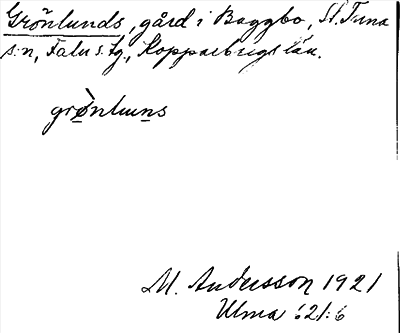 Grönlunds, gård i Baggbo, St. Tuna
s:n, Falu s. tg., Kopparbergs län.
grø̀nluns
M. Andersson 1921
Ulma 621:6